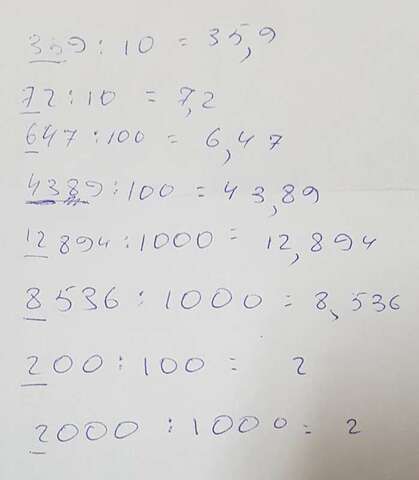 359 : 10 = 35,9
72 : 10 = 7,2
647 : 100 = 6,47
4389 : 100 = 43,89
12894 : 1000 = 12,894
8536 : 1000 = 8,536
200 : 100 = 2
2000 : 1000 = 2